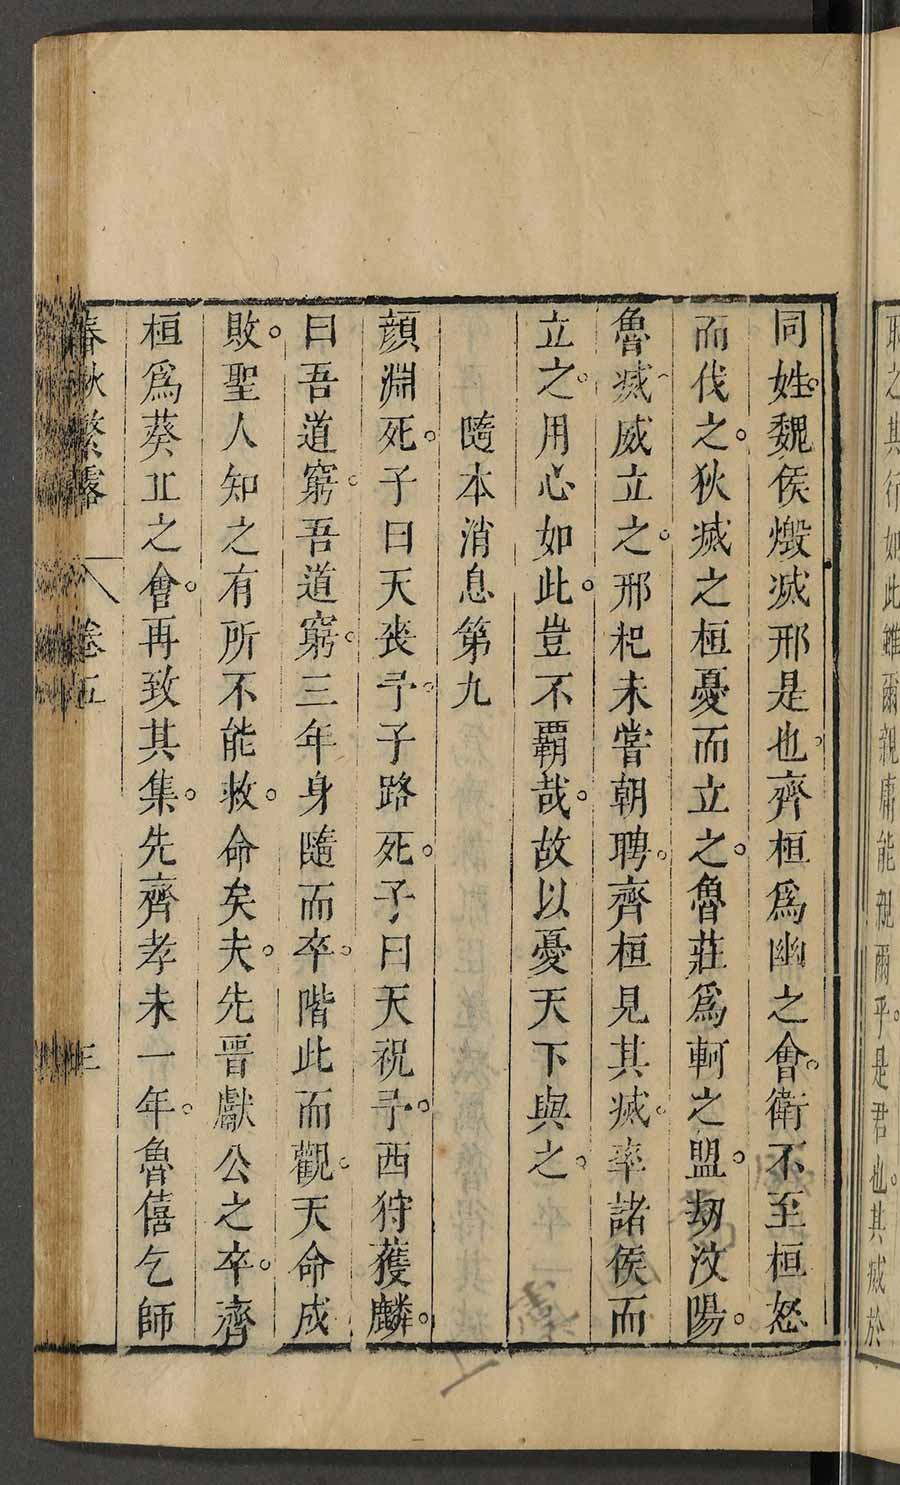 恥之其行如此雖爾親庸能親爾乎。是君也。其滅於
同姓。魏侯燬滅邢是也。齊桓爲幽之會。衛不至桓怒
而伐之。狄滅之桓憂而立之。魯莊爲軻之盟。劫汶陽。
魯滅威立之。邢杞未嘗朝聘。齊桓見其滅。率諸侯而
立之。用心如此。豈不覇哉。故以憂天下與之。
隨本消息第九
顔淵死。子曰天喪予。子路死。子曰天祝予。西狩獲麟。
曰吾道窮。吾道窮。三年身隨而卒。階此而觀。天命成
敗。聖人知之有所不能救。命矣夫。先晋獻公之卒。齊
桓爲葵丘之會。再致其集。先齊孝未一年。魯僖乞師
春秋繁露 卷五 三